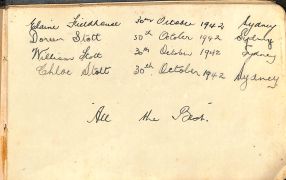 Elaine Fieldhouse 30th October 1942 Sydney
Doreen Stott 30th October 1942 Sydney
William Stott 30th October 1942 Sydney
Chloe Stott 30th October 1942 Sydney
"All the Best."